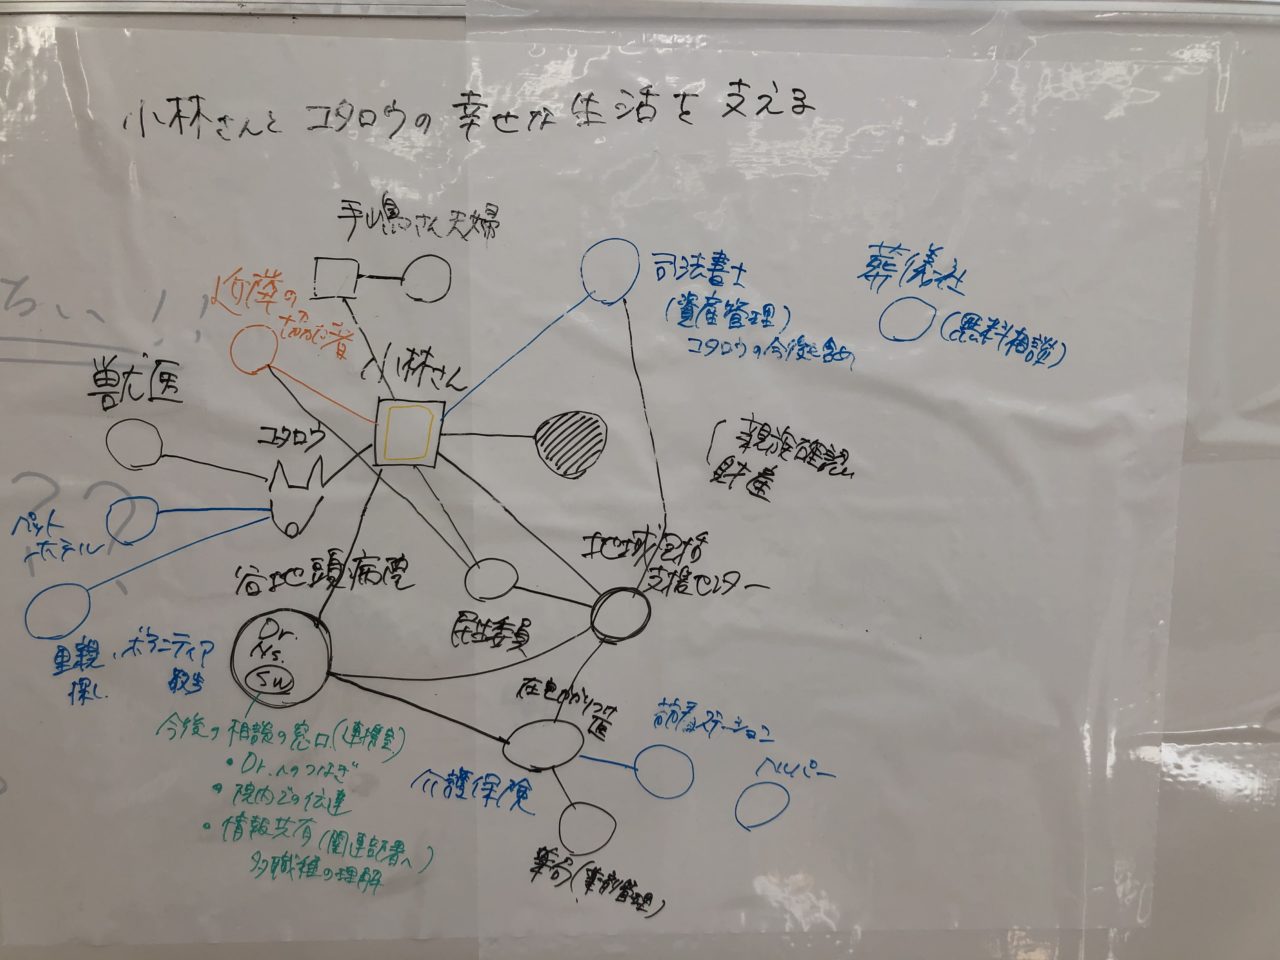 小林さんとコタロウの幸せな生活を支える
手嶋さん夫婦
近隣の
切れた者
小林さん
獣医
コタロウ
ペット
ホテル
里親
探し
ボランティア
谷地頭病院
Dr.
Ns.
SW
民生委員
地域包括
支援センター
司法書士
(資産管理)
コタロウの今後も含め
葬儀社
(無料相談)
親族確認
財産
在宅かかりつけ
医
介護保険
訪看ステーション
ヘルパー
薬局(薬剤管理)
今後の相談の窓口(連携室)
・Dr.へのつなぎ
・院内での伝達
・情報共有(関連部署へ)
多職種の理解